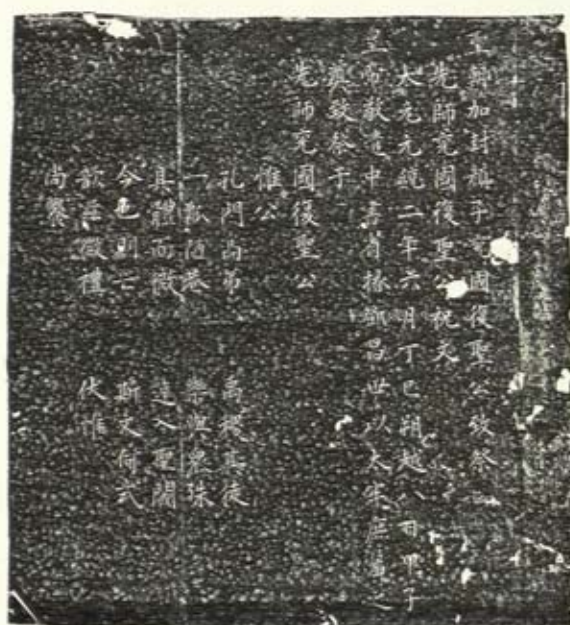 皇朝加封顏子兗國復聖公致祭
先師兗國復聖公祝文
大元元統二年六月丁巳朔越八日甲子
皇帝敬遣中書省掾鄧昌世以太牢庶羞之
奠致祭于
先師兗國復聖公
惟公
孔門高弟 禹稷徒
一瓢陋巷 樂與衆殊
具體而微 入聖閫
今也則亡 斯文何式
歆茲微禮 伏惟
尚饗